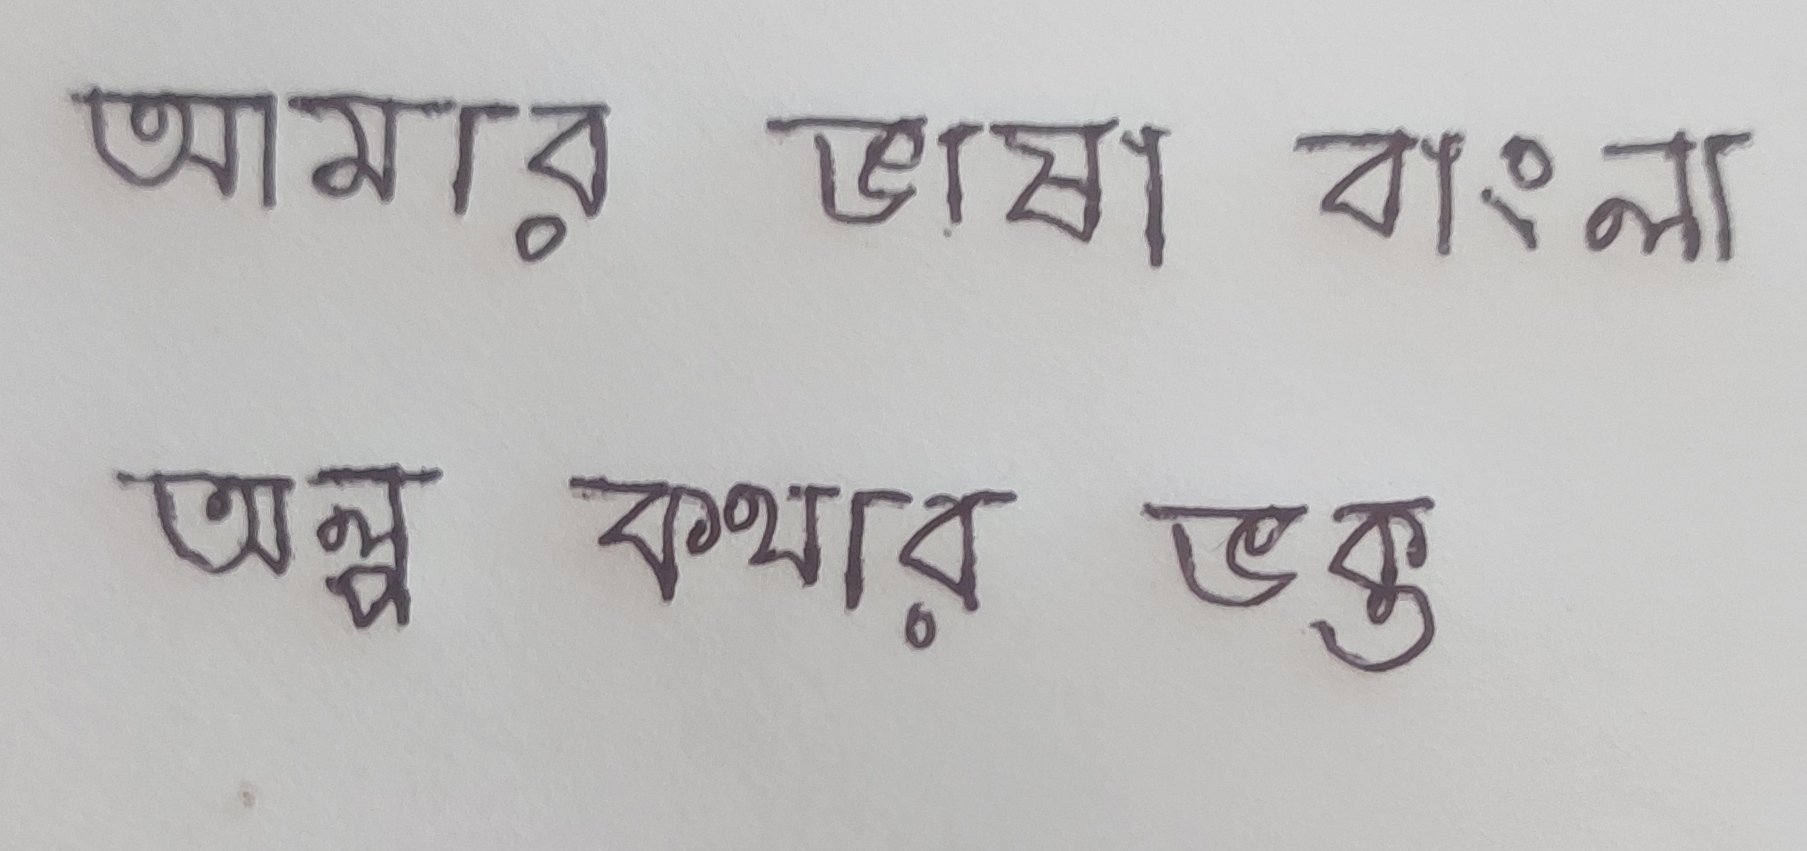 আমার ভাষা বাংলা
অল্প কথার ভক্ত